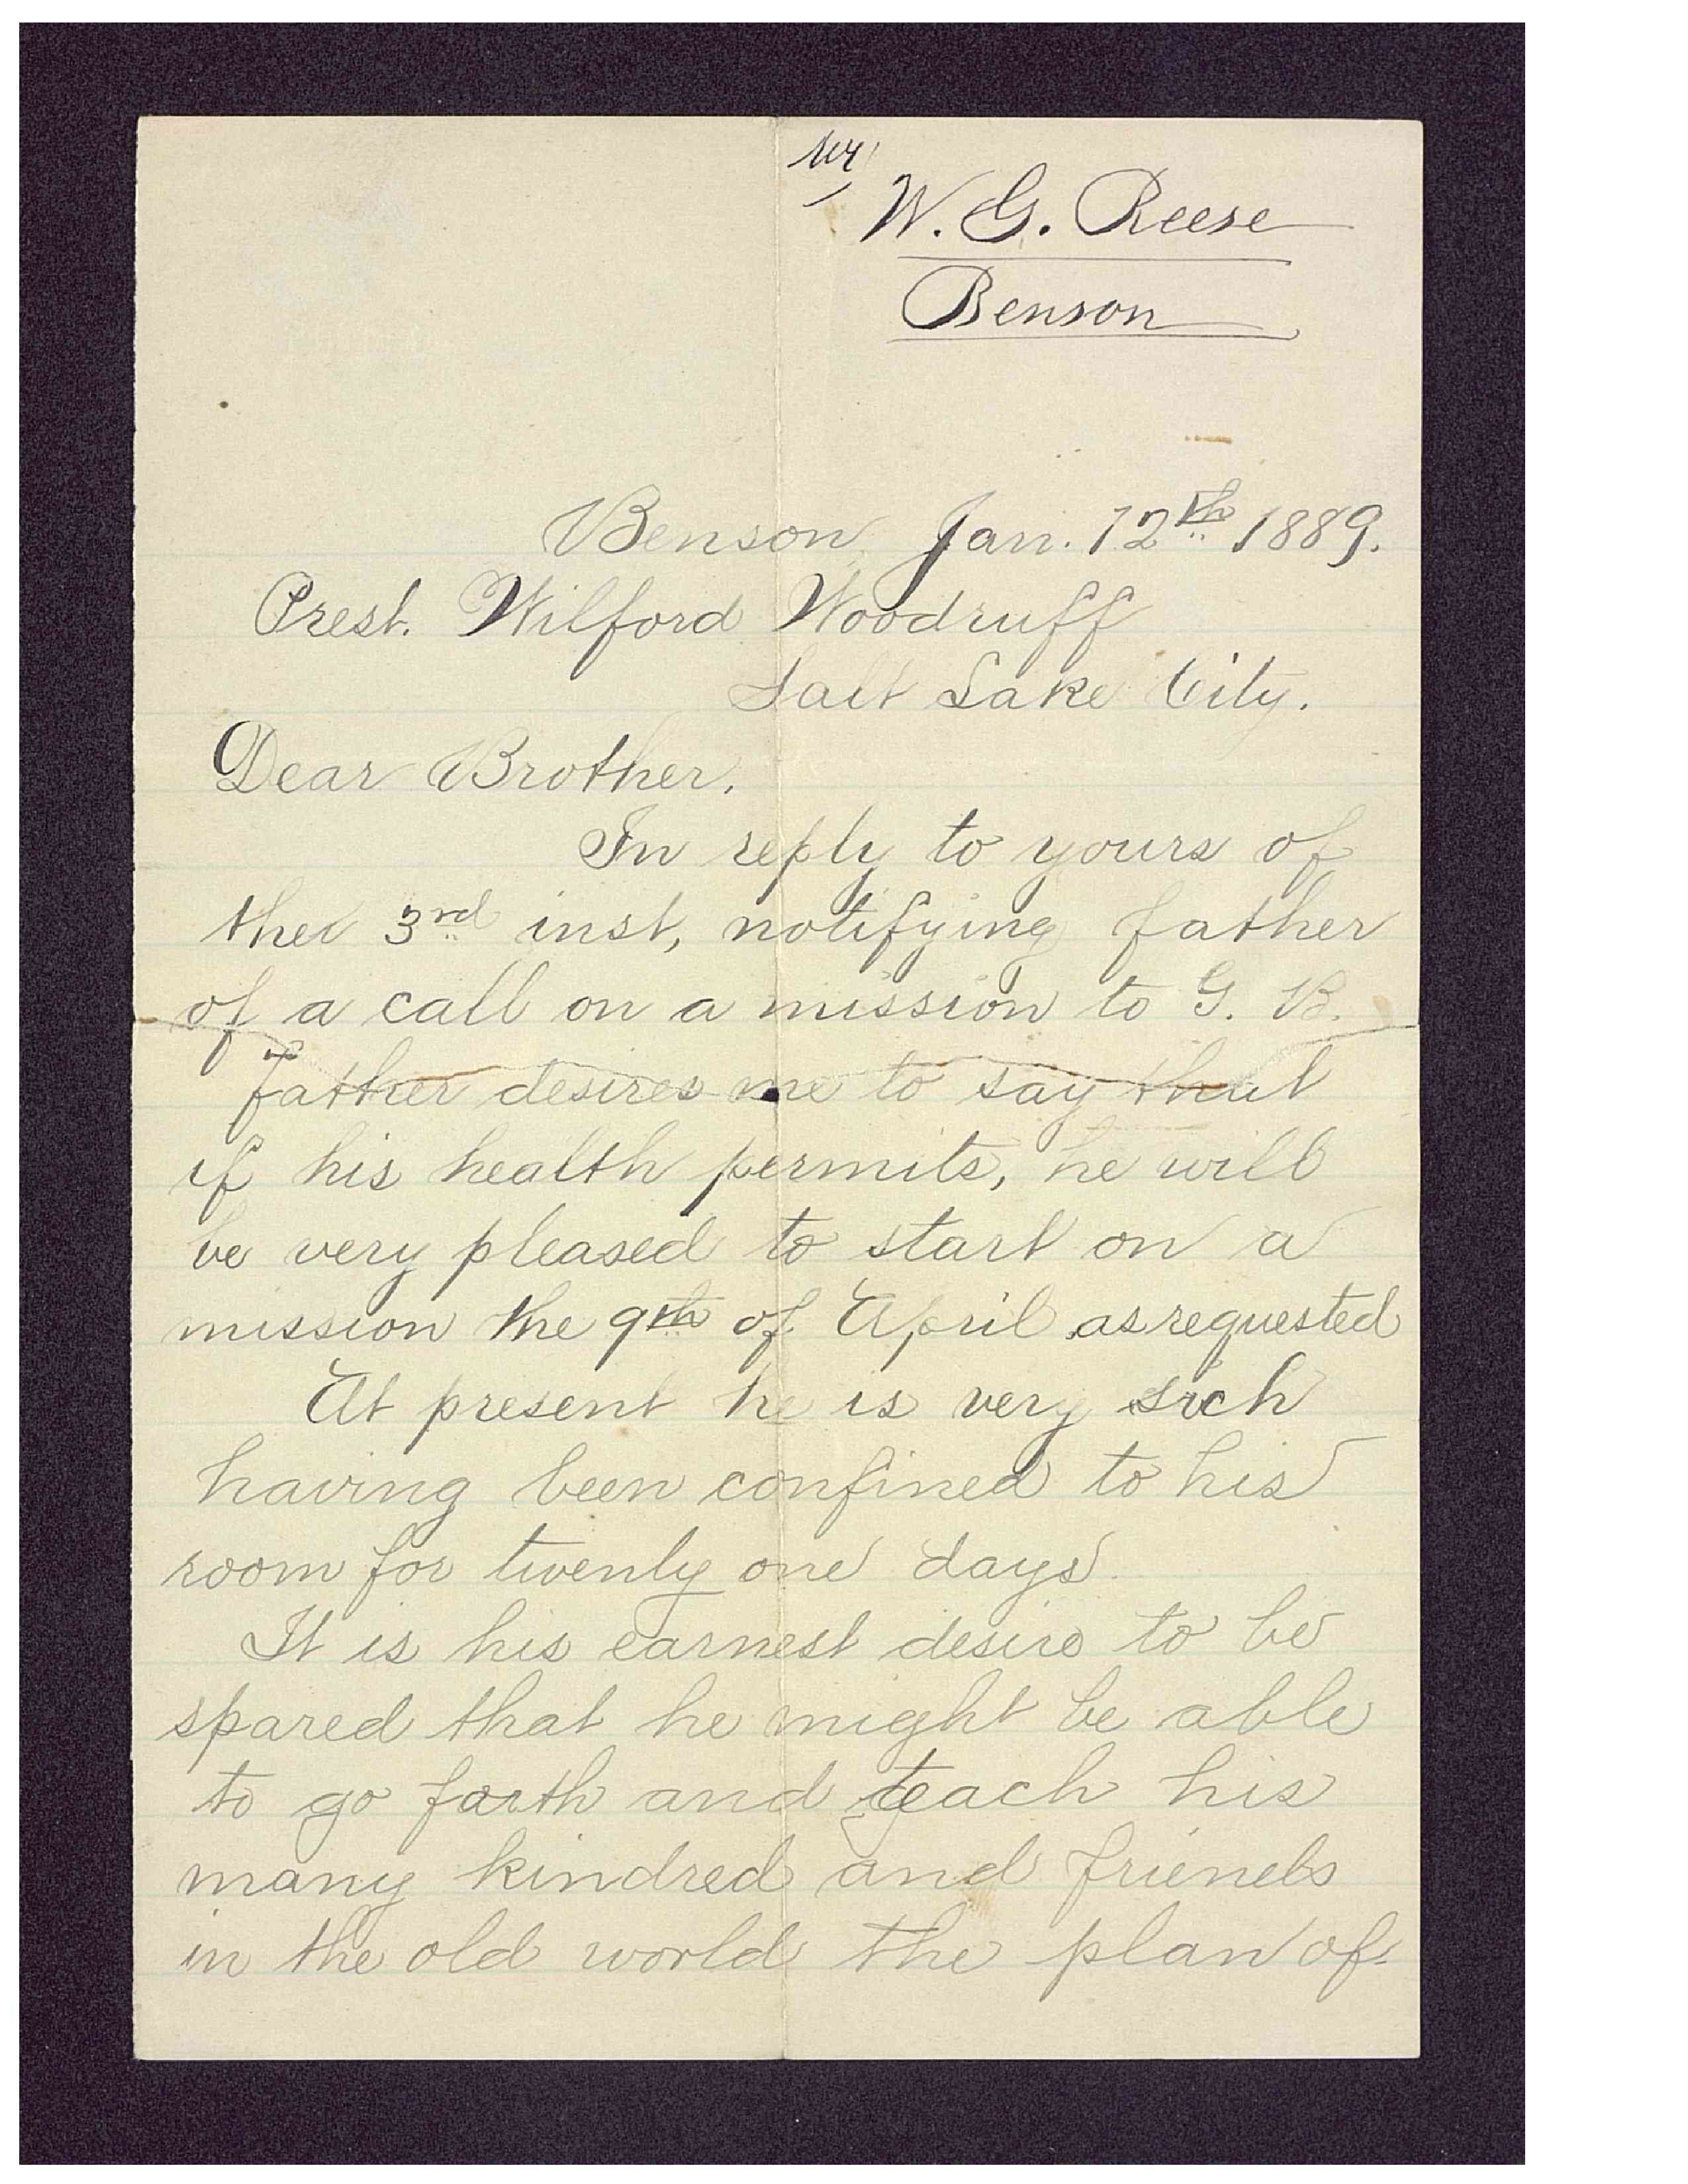 W. G. Reese
Benson
Benson Jan. 12th 1889.
Prest. Wilford Woodruff
Salt Lake City.
Dear Brother,
In reply to yours of
the 3rd inst, notifying father
of a call on a mission to G. B.
father desires me to say that
if his health permits, he will
be very pleased to start on a
mission the 9th of April as requested
At present he is very sick
having been confined to his
room for twenty one days
It is his earnest desire to be
spared that he might be able
to go forth and teach his
many kindred and friends
in the old world the plan of